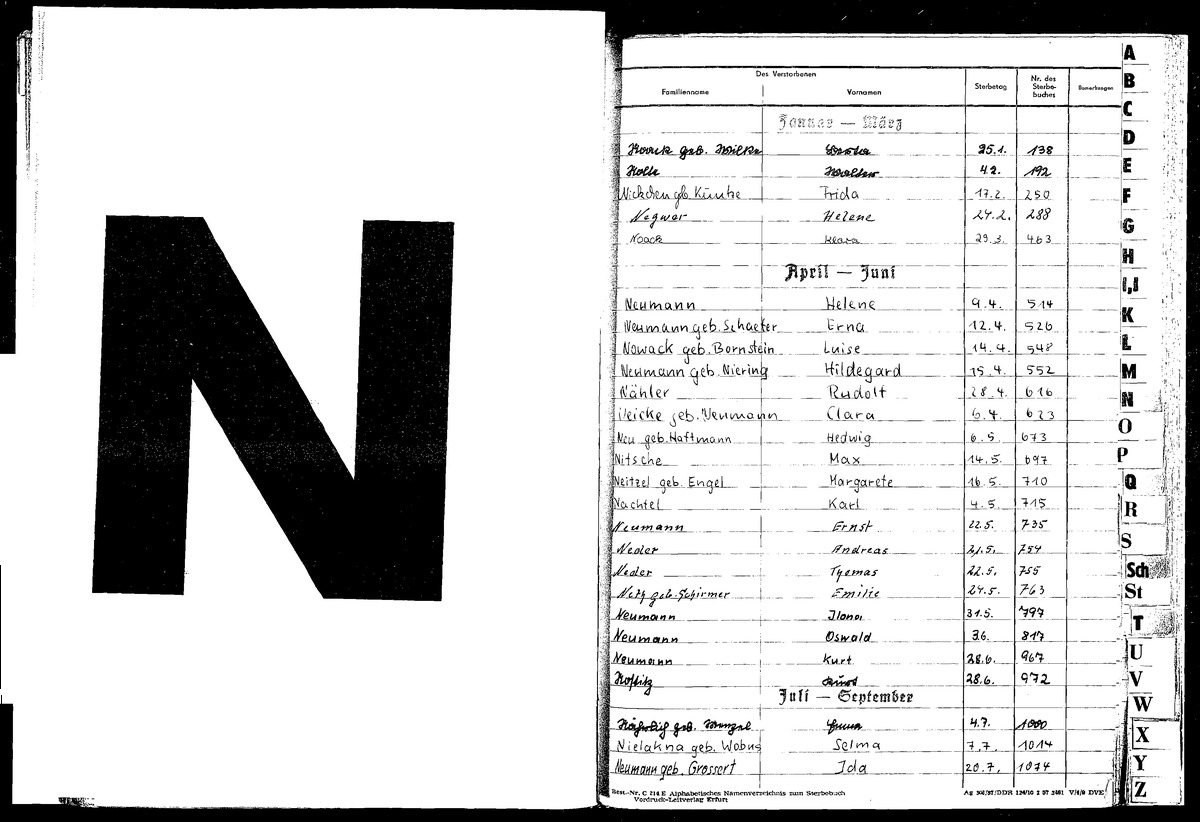 N
Des Verstorbenen
Familienname Vornamen Sterbetag Nr. des Sterbe-buches Bemerkungen
Januar — März
Noack geb. Wilke 25.1. 138
Nolte Walter 4.2. 192
Nickchen gb. Kuntke Frida 17.2. 250
Negwer Helene 24.2. 288
Noack Klara 29.3. 463
April — Juni
Neumann Helene 9.4. 514
Neumann geb. Schaefer Erna 12.4. 526
Nowack geb. Bornstein Luise 14.4. 548
Neumann geb. Niering Hildegard 15.4. 552
Nähler Rudolf 28.4. 616
Neicke geb. Neumann Clara 6.4. 623
Neu geb. Haftmann Hedwig 6.5 673
Nitsche Max 14.5. 697
Neitzel geb. Engel Margarete 16.5. 710
Nachtel Karl 4.5. 715
Neumann Ernst 22.5. 735
Neder Andreas 21.5. 754
Neder Thomas 22.5. 755
Netz geb. Schirmer Emilie 24.5. 763
Neumann Ilona 31.5. 797
Neumann Oswald 3.6. 817
Neumann Kurt 28.6. 967
28.6. 972
Juli — September
geb. 4.7. 1000
Nielakna geb. Wobus Selma 7.7. 1014
Neumann geb. Grossert Ida 20.7. 1074
Best.-Nr. C 214 E Alphabetisches Namenverzeichnis zum Sterbebuch
Vordruck-Leitverlag Erfurt
A
B
C
D
E
F
G
H
I,J
K
L
M
N
O
P
Q
R
S
Sch
St
T
U
V
W
X
Y
Z